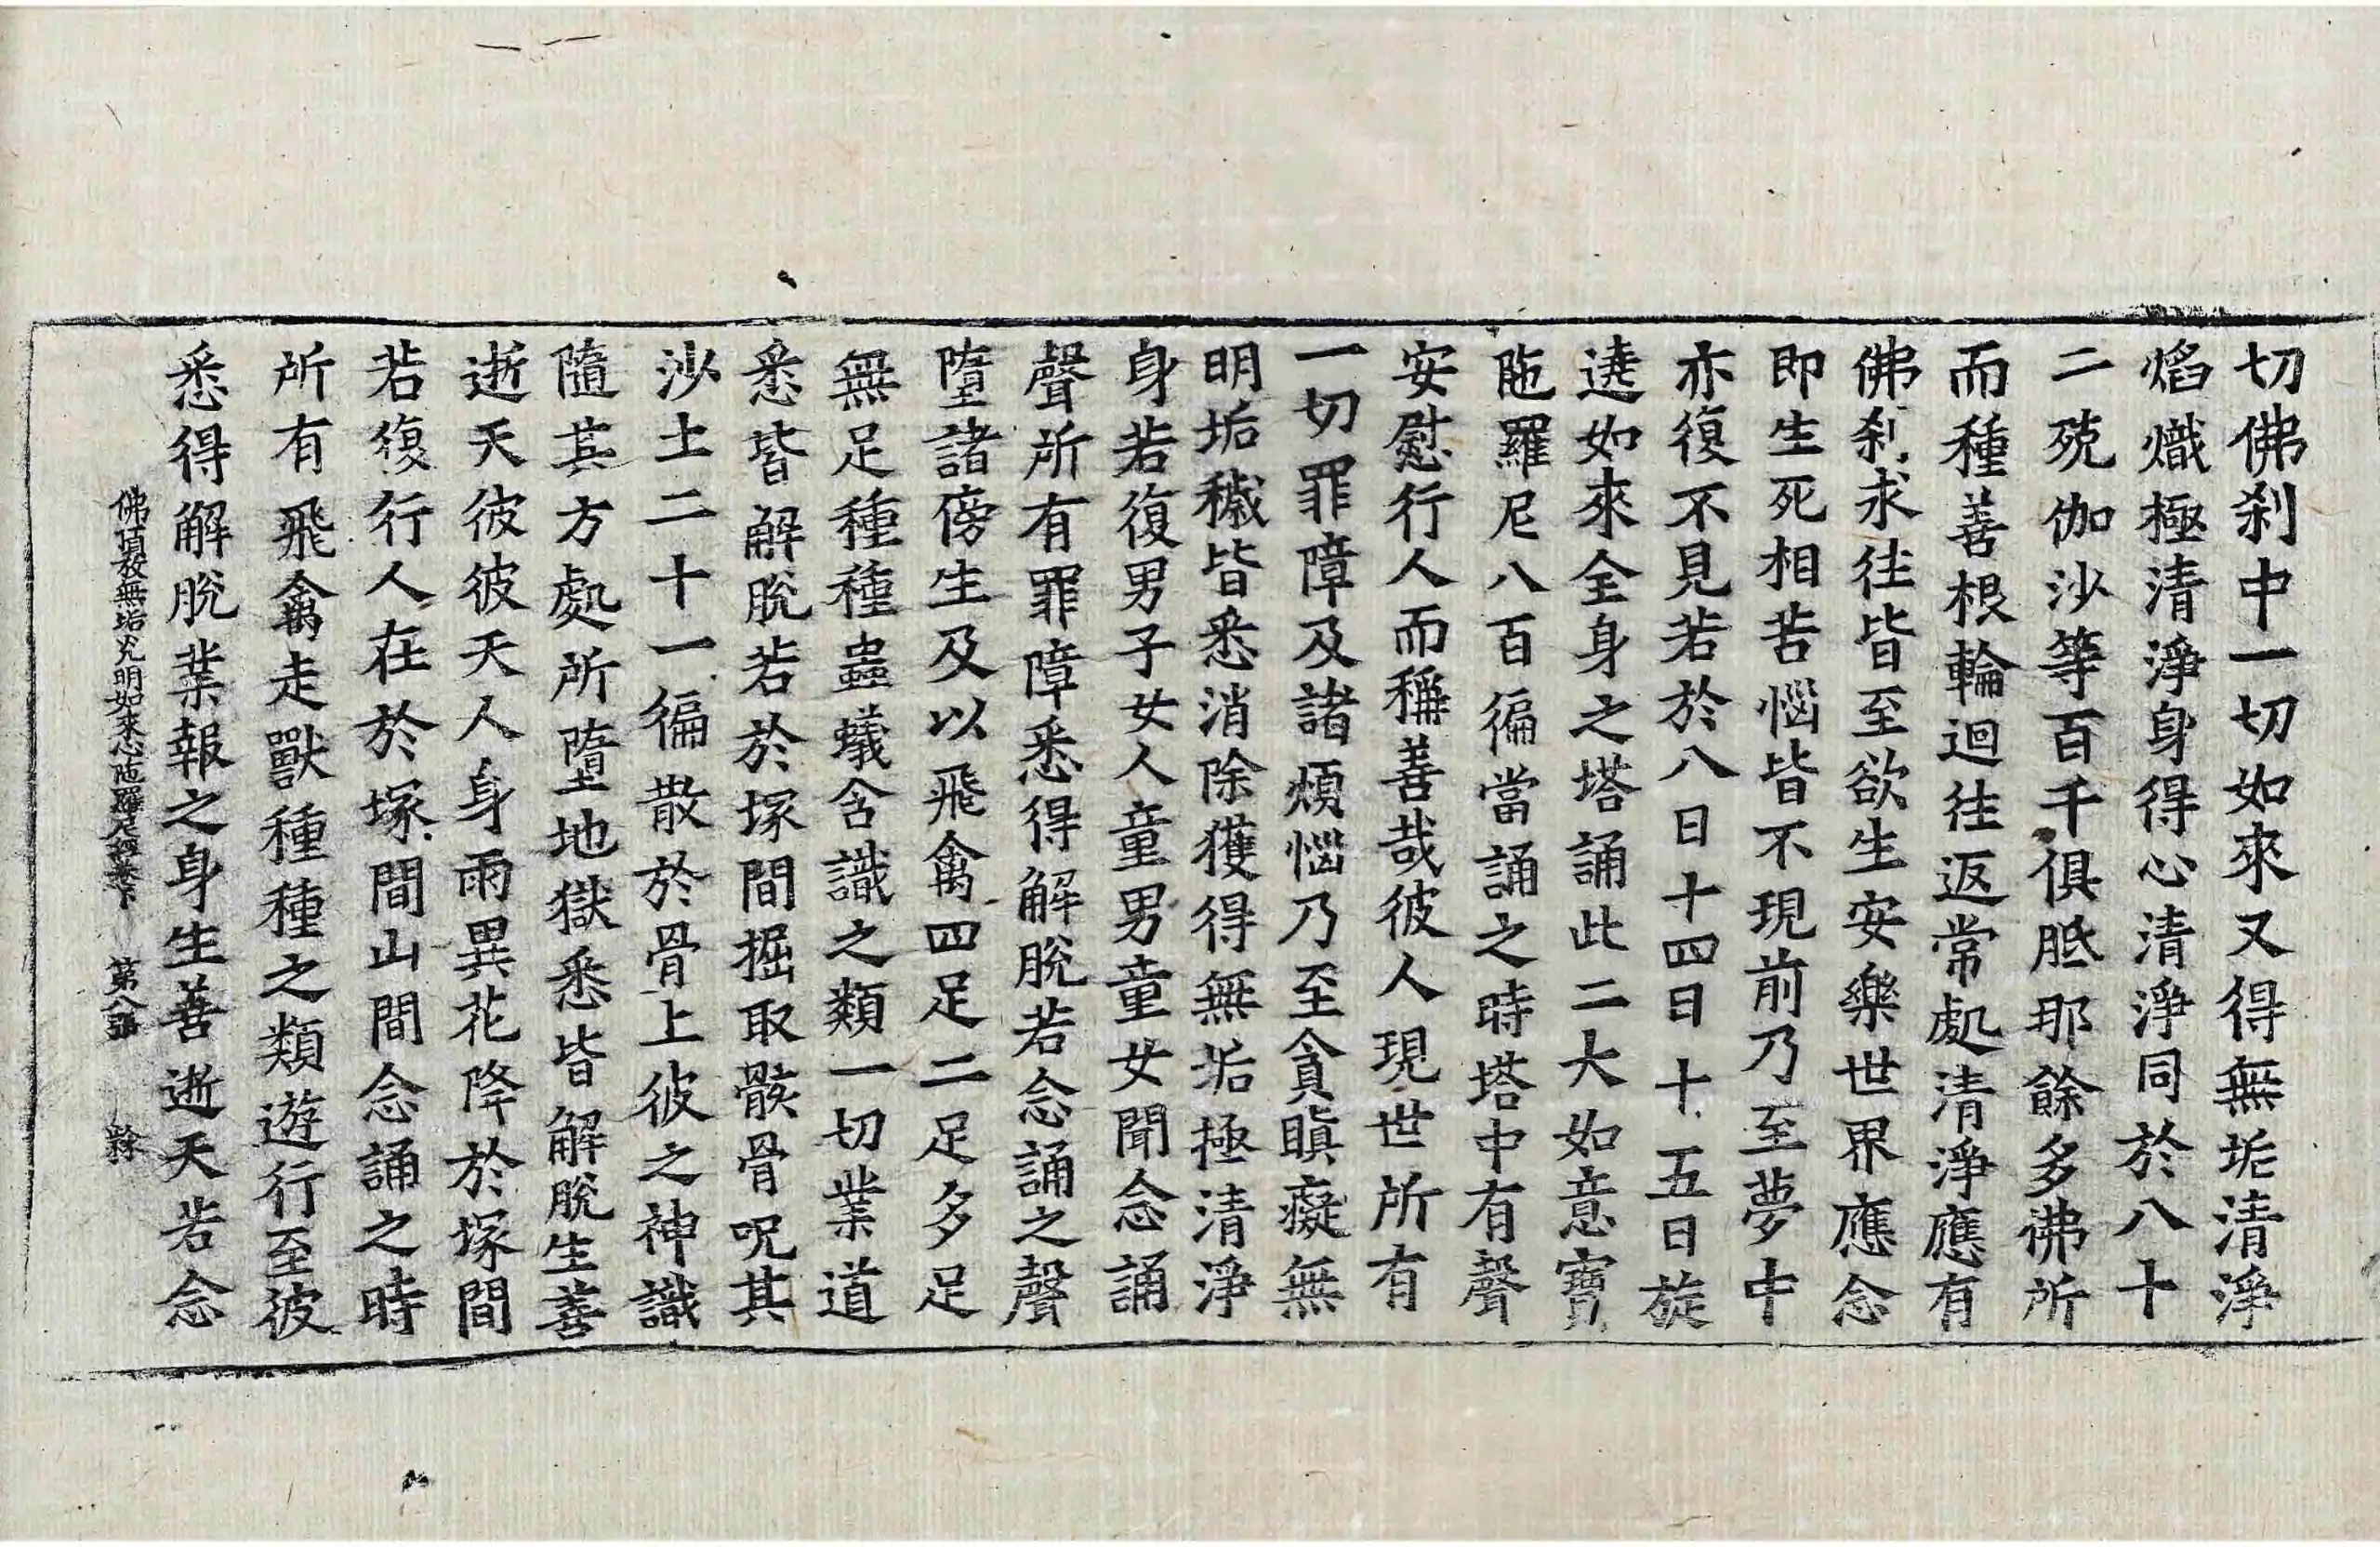 切佛刹中一切如來又得無垢清淨
焰熾極清淨身得心清淨同於八十
二殑伽沙等百千俱胝那餘多佛所
而種善根輪迴往返常處清淨應有
佛刹求往皆至欲生安樂世界應念
即生死相苦惱皆不現前乃至夢中
亦復不見若於八日十四日十五日旋
遶如來全身之塔誦此二大如意寶
陁羅尼八百徧當誦之時塔中有聲
安慰行人而稱善哉彼人現世所有
一切罪障及諸煩惱乃至貪瞋癡無
明垢穢皆悉消除獲得無垢極清淨
身若復男子女人童男童女聞念誦
聲所有罪障悉得解脫若念誦之聲
墮諸傍生及以飛禽四足二足多足
無足種種蟲蟻含識之類一切業道
悉皆解脫若於塚間掘取骸骨呪其
沙土二十一徧散於骨上彼之神識
隨其方處所墮地獄悉皆解脫生善
逝天彼彼天人身雨異花降於塚間
若復行人在於塚間山間念誦之時
所有飛禽走獸種種之類遊行至彼
悉得解脫業報之身生善逝天若念
佛頂放無垢光明如來心陁羅尼經卷下 第八張